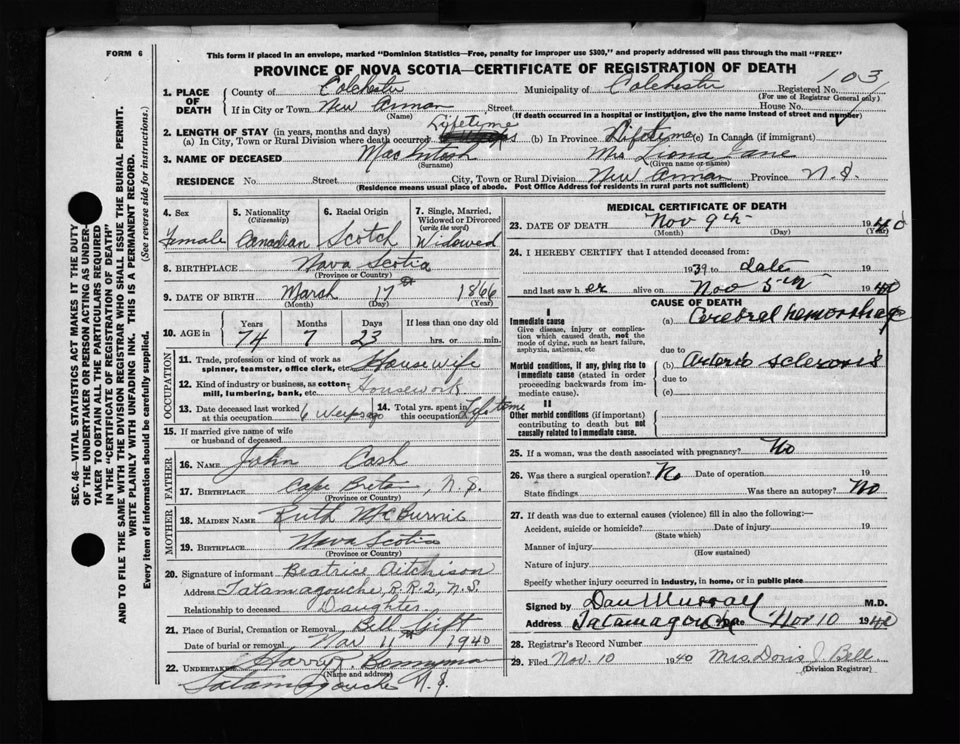 FORM 6
This form if placed in an envelope, marked "Dominion Statistics—Free, penalty for improper use $300," and properly addressed will pass through the mail "FREE"
PROVINCE OF NOVA SCOTIA—CERTIFICATE OF REGISTRATION OF DEATH
103
1. PLACE OF DEATH County of Colchester Municipality of Colchester Registered No.
(For use of Registrar General only)
If in City or Town New Annan Street House No.
(Name) (If death occurred in a hospital or institution, give the name instead of street and number)
2. LENGTH OF STAY (in years, months and days)
(a) In City, Town or Rural Division where death occurred Lifetime (b) In Province Lifetime (c) In Canada (if immigrant)
3. NAME OF DECEASED MacIntosh Mrs Liona Jane
(Surname) (Given name or names)
RESIDENCE No. Street City, Town or Rural Division New Annan Province N.S.
(Residence means usual place of abode. Post Office Address for residents in rural parts not sufficient)
4. Sex Female
5. Nationality (Citizenship) Canadian
6. Racial Origin Scotch
7. Single, Married, Widowed or Divorced (write the word) Widowed
8. BIRTHPLACE Nova Scotia
(Province or Country)
9. DATE OF BIRTH March 17th 1866
(Month) (Day) (Year)
10. AGE in Years Months Days If less than one day old
74 7 23 hrs. or min.
OCCUPATION
11. Trade, profession or kind of work as spinner, teamster, office clerk, etc. Housewife
12. Kind of industry or business, as cotton-mill, lumbering, bank, etc. Housework
13. Date deceased last worked at this occupation 6 weeks ago
14. Total yrs. spent in this occupation Lifetime
15. If married give name of wife or husband of deceased
FATHER
16. NAME John Cash
17. BIRTHPLACE Cape Breton, N.S.
(Province or Country)
MOTHER
18. MAIDEN NAME Ruth McBurnie
19. BIRTHPLACE Nova Scotia
(Province or Country)
20. Signature of informant Beatrice Aitchison
Address Tatamagouche, R.R.2, N.S.
Relationship to deceased Daughter
21. Place of Burial, Cremation or Removal Bell Gift
Date of burial or removal Nov 11th 1940
22. UNDERTAKER
(Name and address)
Tatamagouche N.S.
MEDICAL CERTIFICATE OF DEATH
23. DATE OF DEATH Nov 9th 1940
(Month) (Day) (Year)
24. I HEREBY CERTIFY that I attended deceased from:
1939 to date 19
and last saw her alive on Nov 5th 1940
CAUSE OF DEATH
I
Immediate cause (a) Cerebral hemorrhage
Give disease, injury or complication which caused death, not the mode of dying, such as heart failure, asphyxia, asthenia, etc
due to
Morbid conditions, if any, giving rise to immediate cause (stated in order proceeding backwards from immediate cause) (b) Arterio sclerosis
due to
(c)
II
Other morbid conditions (if important) contributing to death but not causally related to immediate cause.
25. If a woman, was the death associated with pregnancy? No
26. Was there a surgical operation? No Date of operation 19
State findings Was there an autopsy? No
27. If death was due to external causes (violence) fill in also the following:—
Accident, suicide or homicide? Date of injury 19
(State which)
Manner of injury
(How sustained)
Nature of injury
Specify whether injury occurred in industry, in home, or in public place
Signed by Dan Murray M.D.
Address Tatamagouche Date Nov 10 1940
28. Registrar's Record Number
29. Filed Nov. 10 1940 Mrs Doris J. Bell
(Division Registrar)
SEC. 46—VITAL STATISTICS ACT MAKES IT THE DUTY
OF THE UNDERTAKER OR PERSON ACTING AS UNDER-
TAKER TO OBTAIN ALL THE PARTICULARS REQUIRED
IN THE "CERTIFICATE OF REGISTRATION OF DEATH"
AND TO FILE THE SAME WITH THE DIVISION REGISTRAR WHO SHALL ISSUE THE BURIAL PERMIT.
WRITE PLAINLY WITH UNFADING INK. THIS IS A PERMANENT RECORD.
Every item of information should be carefully supplied. (See reverse side for instructions.)